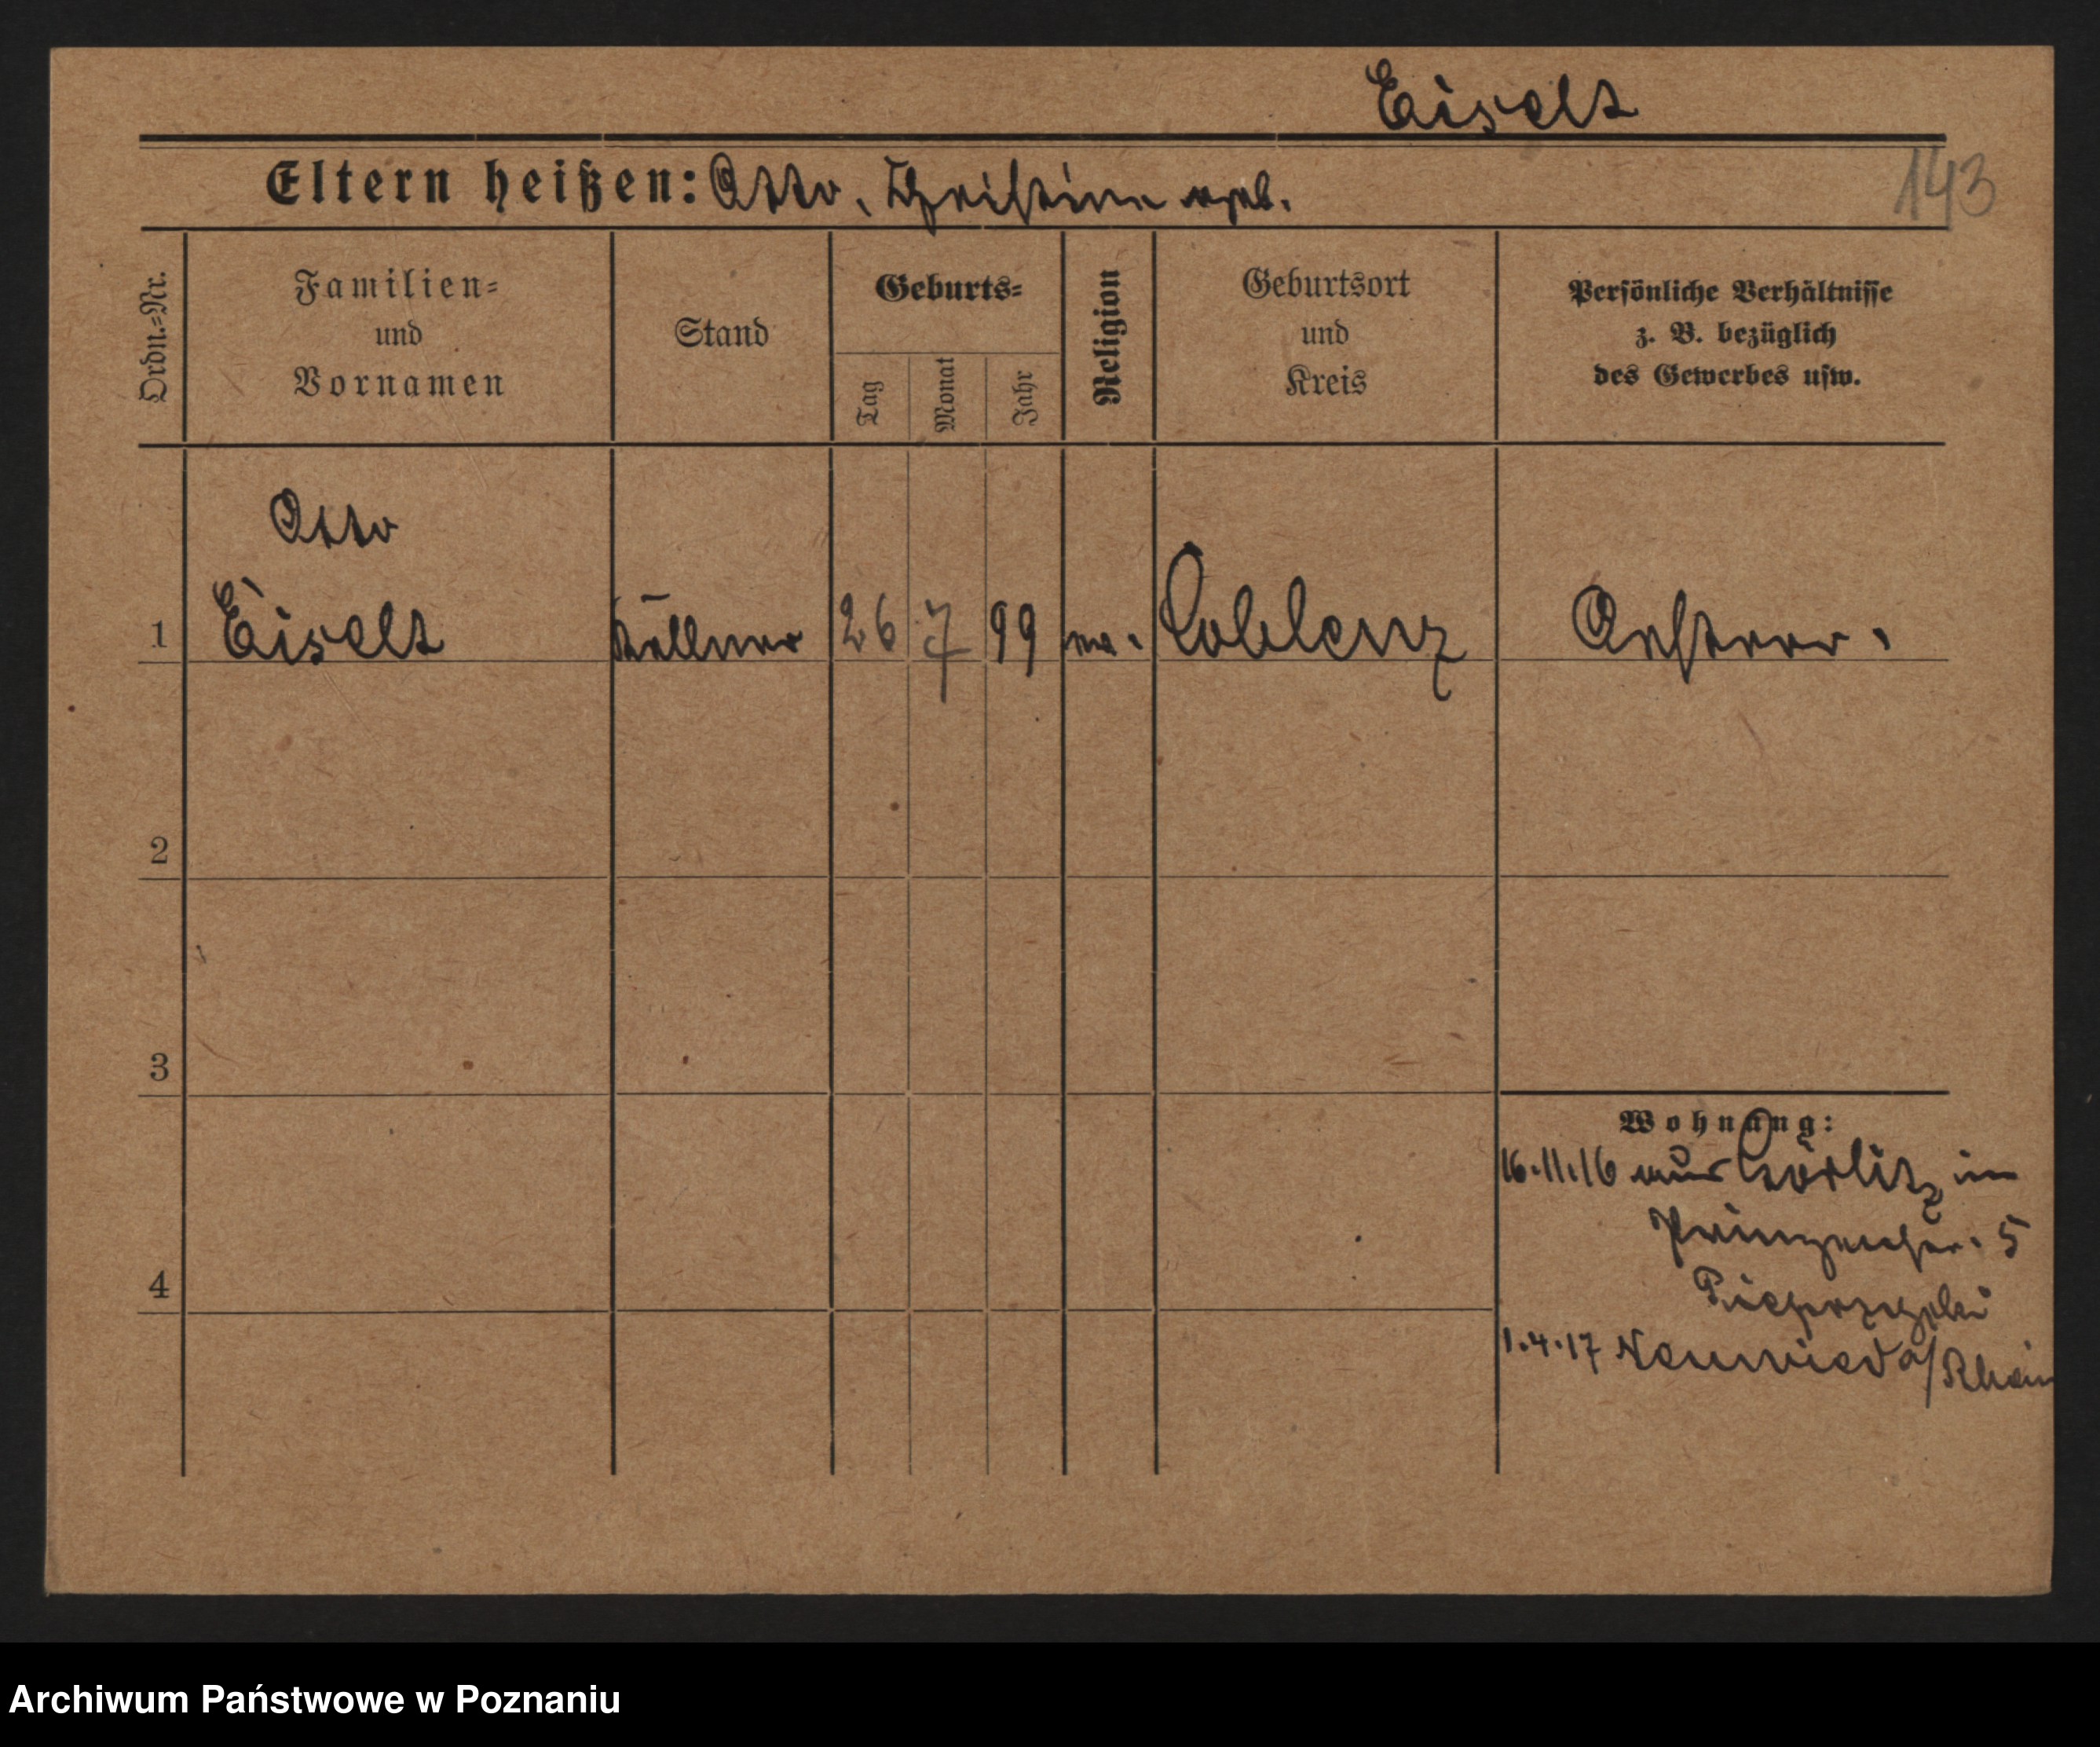 Eiselt
Eltern heißen: Otto, Christine geb.
143
Ordn.=Nr.
Familien=
und
Vornamen
Stand
Geburts=
Tag
Monat
Jahr
Religion
Geburtsort
und
Kreis
Persönliche Verhältnisse
z. B. bezüglich
des Gewerbes usw.
Otto
1 Eiselt Kellner 26 7 99 ev. Coblenz Oesterr.
2
3
4
Wohnung:
16.11.16 aus Görlitz in
Prinzenstr. 5
1.4.17 Neuwied a/Rhein
Archiwum Państwowe w Poznaniu